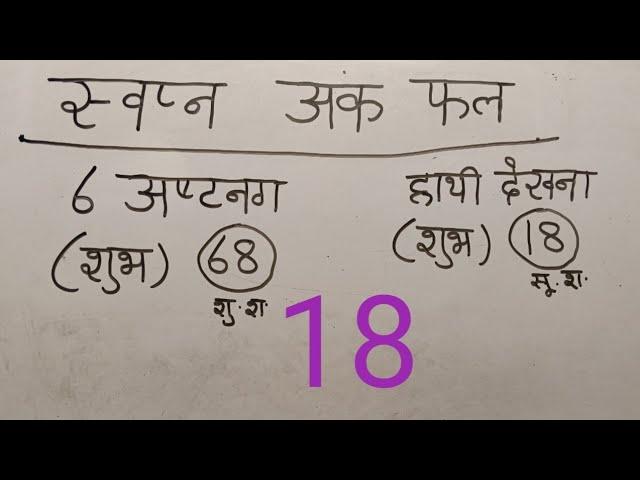 स्वप्न अक फल
६ अष्टनग
(शुभ) 68
शु. श.
हाथी देखना
(शुभ) 18
सू. श.
18